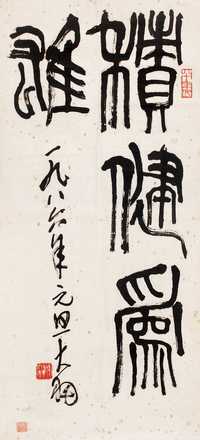 積健為
雄
一九八六年元旦大翔